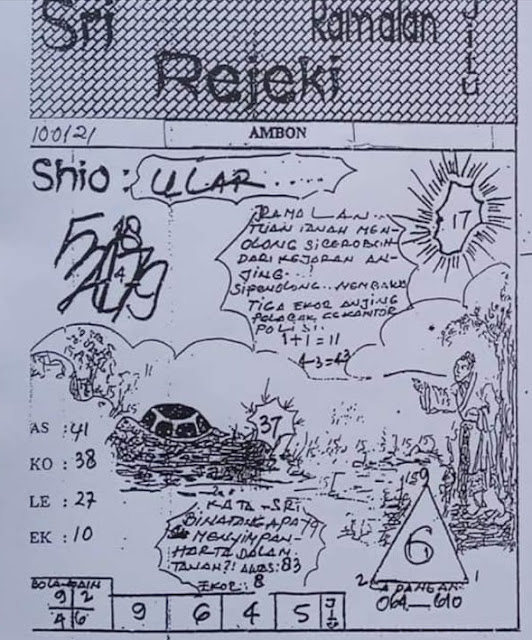 Sri Ramalan Jitu
Rejeki
100/21
AMBON
Shio : ULAR.....
RAMALAN...
TUAN TANAH MEN-
OLONG SICEROBOH
DARI KEJARAN AN-
JING...!
SIPENOLONG...MEMBAWA
TIGA EKOR ANJING
PELACAK KEKANTOR
POLISI.
1+1=11
4-3=43
17
18
4
37
AS : 41
KO : 38
LE : 27
EK : 10
KATA-SRI
BINATANG APA
MENYIMPAN
HARTA DALAM
TANAH?! AWAS:83
EKOR: 8
9
6
2
1
CADANGAN:
064__610
BOLA-MAIN
9 2
4 6
9 6 4 5 JITU